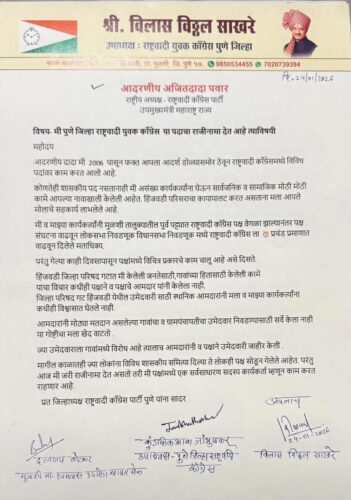 श्री. विलास विठ्ठल साखरे
उपाध्यक्ष : राष्ट्रवादी युवक काँग्रेस पुणे जिल्हा
ता. मुळशी, जि. पुणे 9850534455 7820739394
दि. 24/01/2026
आदरणीय अजितदादा पवार
राष्ट्रीय अध्यक्ष - राष्ट्रवादी काँग्रेस पार्टी
उपमुख्यमंत्री महाराष्ट्र राज्य
विषय- मी पुणे जिल्हा राष्ट्रवादी युवक काँग्रेस या पदाचा राजीनामा देत आहे त्याविषयी
महोदय
आदरणीय दादा मी 2006 पासून फक्त आपला आदर्श डोळ्यासमोर ठेवून राष्ट्रवादी काँग्रेसमध्ये विविध
पदांवर काम करत आलो आहे.
कोणतेही शासकीय पद नसतानाही मी असंख्य कार्यकर्त्यांना घेऊन सार्वजनिक व सामाजिक मोठी मोठी
कामे आपल्या नावाखाली केलेली आहेत. हिंजवडी परिसराचा कायापालट करत असताना मला आपले
मोलाचे सहकार्य लाभलेले आहे.
मी व माझ्या कार्यकर्त्यांनी मुळशी तालुक्यातील पुर्व पट्ट्यात राष्ट्रवादी काँग्रेस पक्ष वेगळा झाल्यानंतर पक्ष
संघटना वाढवून लोकसभा निवडणूक विधानसभा निवडणूक मध्ये राष्ट्रवादी काँग्रेस ला प्रचंड प्रमाणात
वाढवून दिलेले मताधिक्य.
परंतु गेल्या काही दिवसापासून पक्षांमध्ये विचित्र प्रकारचे काम चालू आहे असे दिसते.
हिंजवडी जिल्हा परिषद गटात मी केलेली जनतेसाठी,गावांच्या हितासाठी केलेली कामे
याचा विचार कधीही पक्षाने व पक्षाचे आमदार यांनी केलेला नाही.
जिल्हा परिषद गट हिंजवडी येथील उमेदवारी साठी स्थानिक आमदारांनी मला व माझ्या कार्यकर्त्यांना
कधीही विश्वासात घेतले नाही.
आमदारांनी मोठ्या मतदान असलेल्या गावांचा व ग्रामपंचायतीचा उमेदवार निवडण्यासाठी सर्वे केला नाही
या गोष्टीचा मला खेद वाटतो .
ज्या उमेदवाराला गावांमध्ये विरोध आहे त्यालाच आमदारांनी व पक्षाने उमेदवारी जाहीर केली .
मागील काळातही ज्या लोकांना विविध शासकीय समित्या दिल्या ते लोकही पक्ष सोडून गेलेले आहेत. परंतु
आज मी जरी राजीनामा देत असतो तरी मी पक्षांमध्ये एक सर्वसाधारण सदस्य कार्यकर्ता म्हणून काम करत
राहणार आहे.
प्रत जिल्हाध्यक्ष राष्ट्रवादी काँग्रेस पुणे यांना सादर
24-01-2026
विलास विठ्ठल साखरे